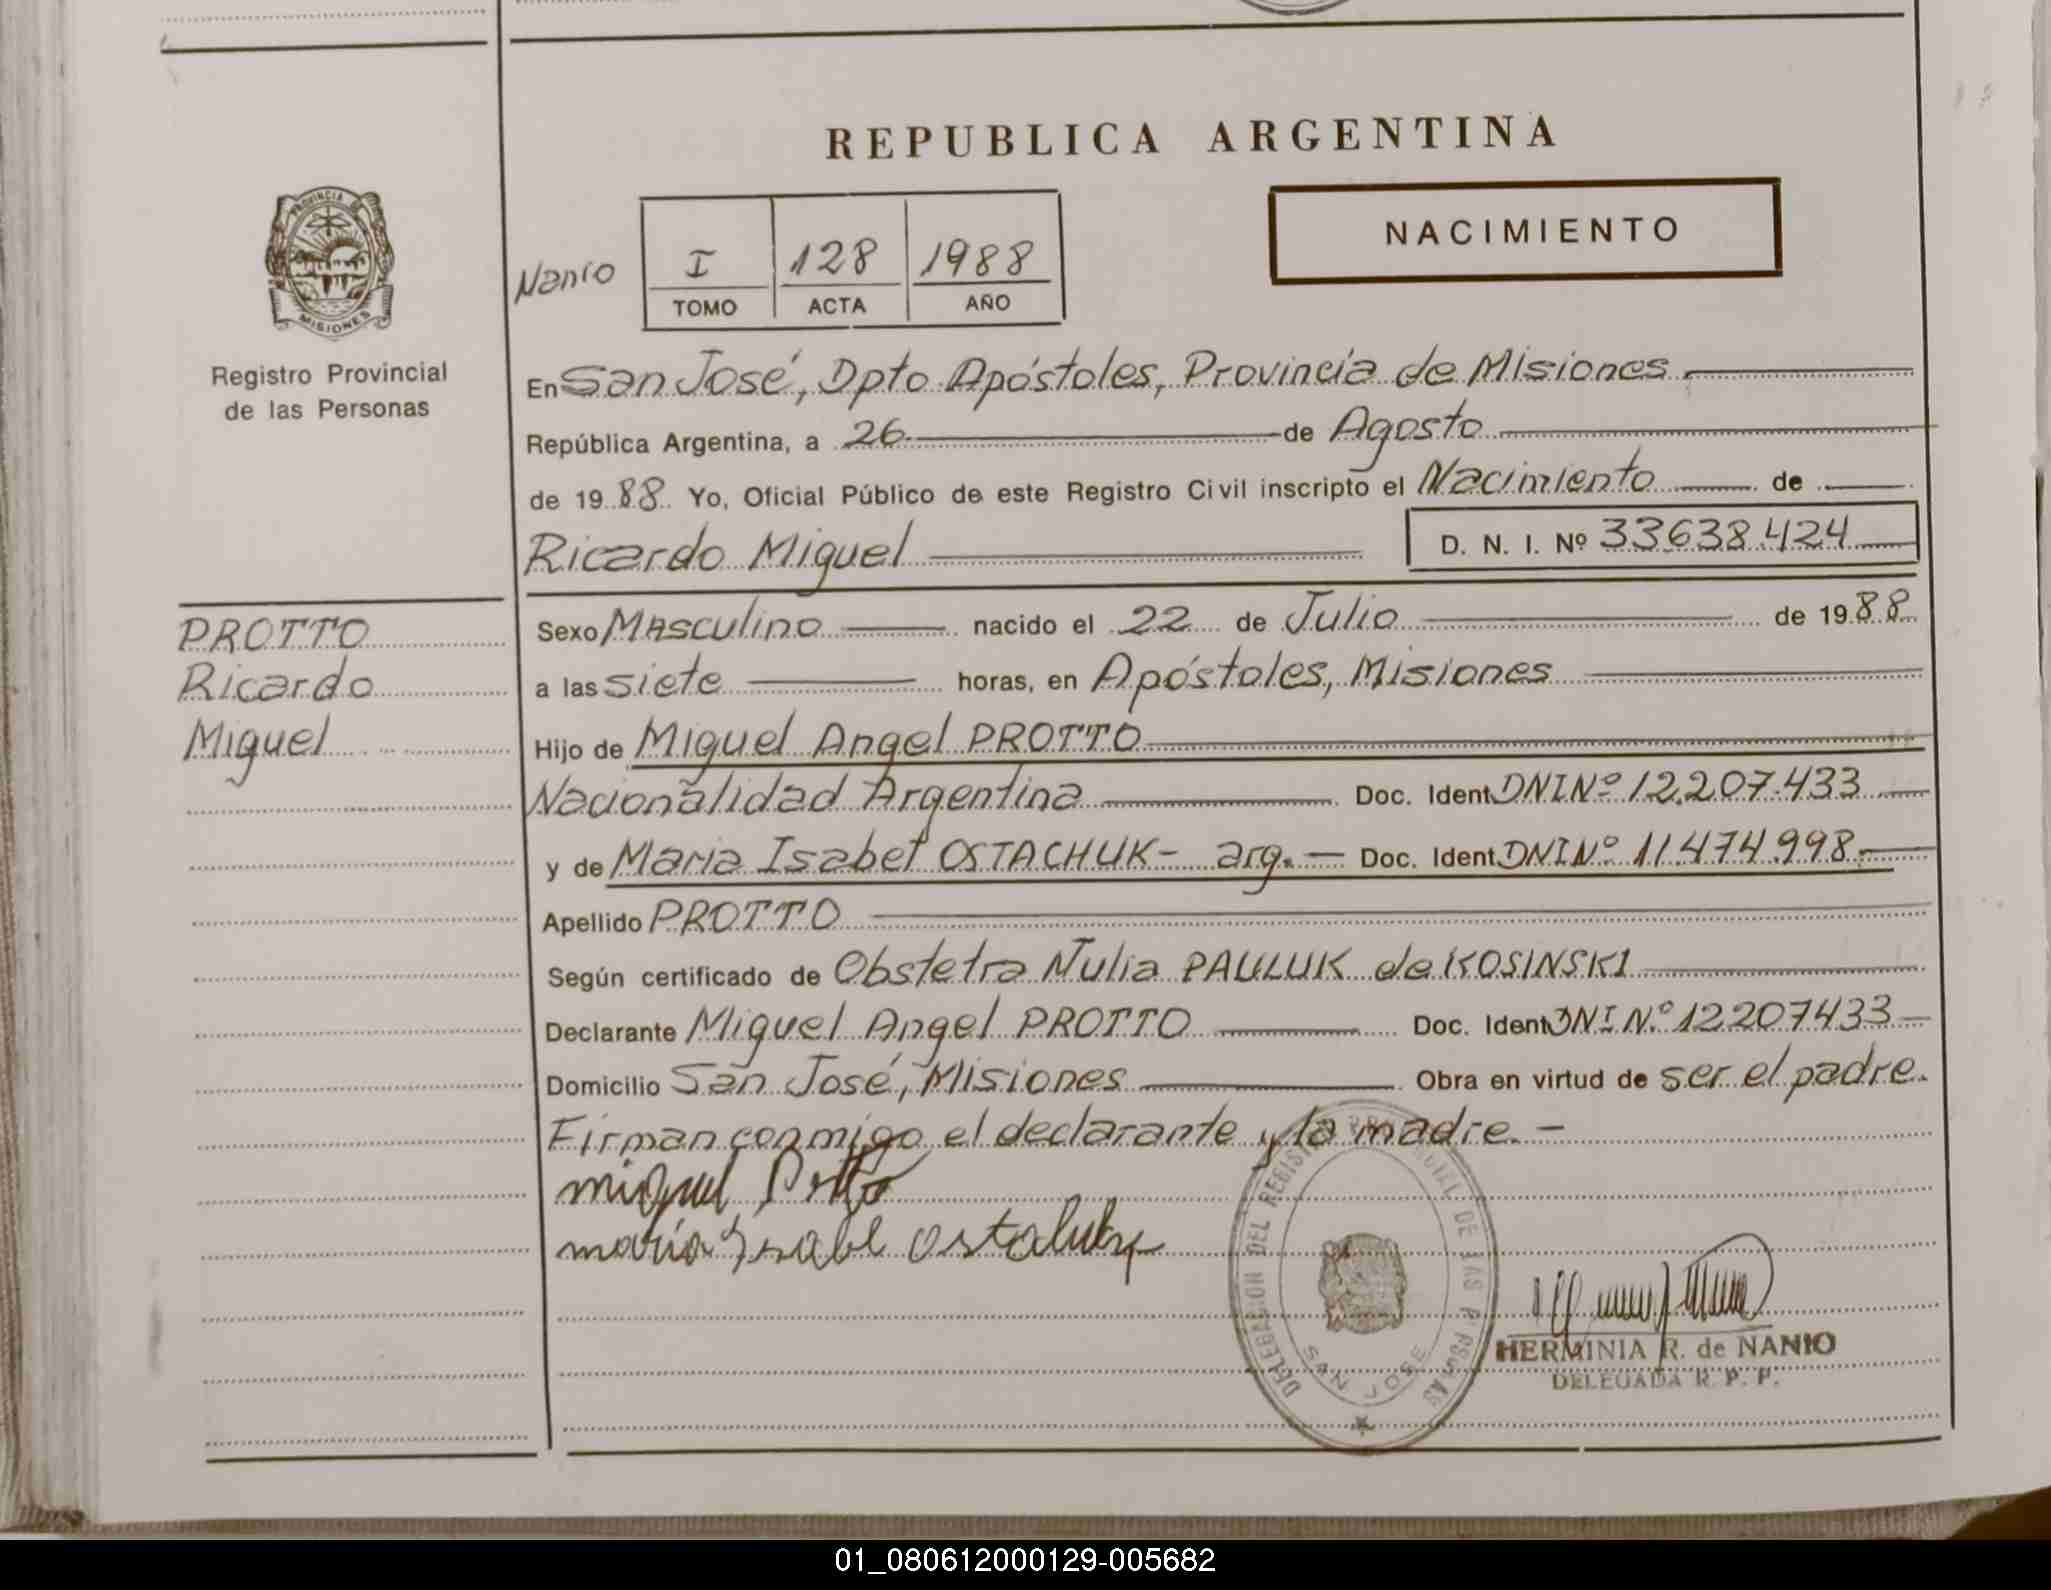 REPUBLICA ARGENTINA
PROVINCIA DE
MISIONES
Registro Provincial
de las Personas
NACIMIENTO
Nanio
I 128 1988
TOMO ACTA AÑO
En San José, Dpto Apóstoles, Provincia de Misiones
República Argentina, a 26 de Agosto
de 1988 Yo, Oficial Público de este Registro Civil inscripto el Nacimiento de
Ricardo Miguel D. N. I. Nº 33638.424
PROTTO
Ricardo
Miguel
Sexo Masculino nacido el 22 de Julio de 1988
a las siete horas, en Apóstoles, Misiones
Hijo de Miguel Angel PROTTO
Nacionalidad Argentina Doc. Ident DNI Nº 12.207.433
y de Maria Isabel OSTACHUK- arg.- Doc. Ident DNI Nº 11.474.998.-
Apellido PROTTO
Según certificado de Obstetra Julia PAULUK de KOSINSKI
Declarante Miguel Angel PROTTO Doc. Ident DNI N.º 12207433
Domicilio San José, Misiones Obra en virtud de ser el padre.
Firman conmigo el declarante y la madre.-
miguel Protto
maria Isabel
DELEGACION DEL REGISTRO PROVINCIAL DE LAS PERSONAS
SAN JOSE
HERMINIA R. de NANIO
DELEGADA R. P. P.
01_080612000129-005682